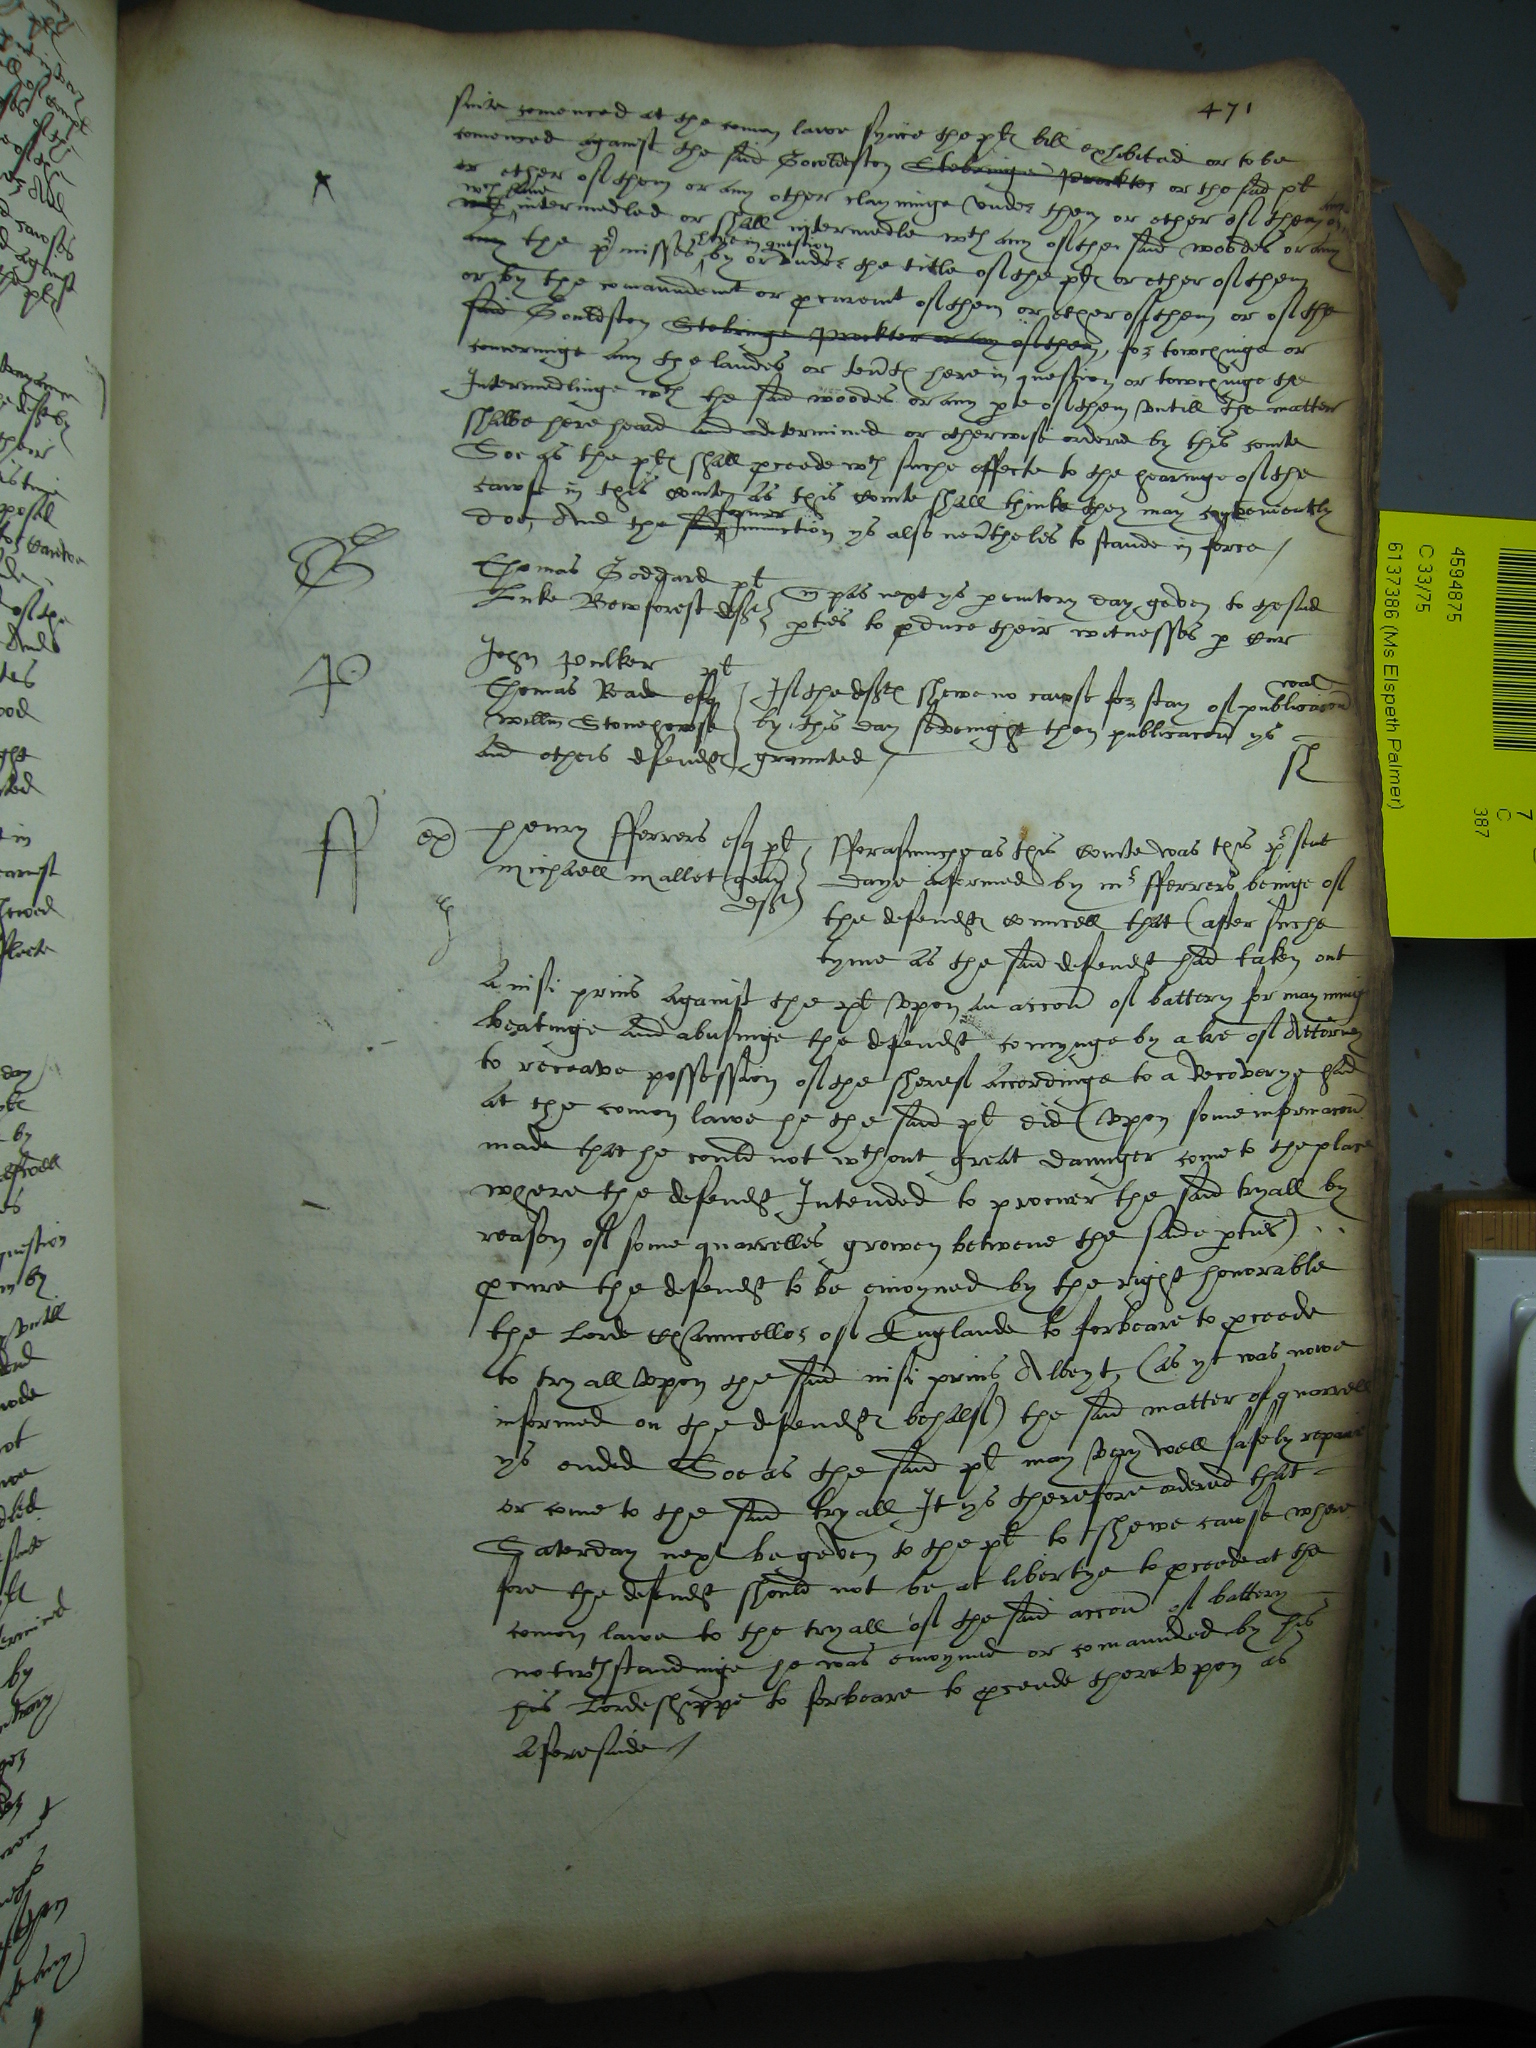 471
suite comenced at the comon lawe synce the plt bill exhibited or to be
comenced against the said Gouldeston Stebringe Prockter or the said plt
or ether of them or any other clayminge under them or ether of them
wch have intermedled or shall intermedle wth any of the said woodes or any
any the pmisses here in question by or under the title of the plt or ether of them
or by the comaundemt or pcuremt of them or ether of them or of the
said Gouldston Stebringe Prockter or any of them, for towchinge or
concerninge any the landes or tents here in question or towchinge the
Intermedlinge wth the said woodes or any pte of them untill the matter
shalbe here heard and determined or otherwise ordered by this courte
Soe as the plt shall pceede wth suche effecte to the hearinge of the
cawse in this courte as this courte shall thinke they may conveniently
doe, And the said former iniunction ys also nevtheles to stande in force /
G
Thomas Goddard plt
Luke Bowforest deft
psns next ys pemtory day geven to the said
pties to pduce their witnesses p cur
P
John Pulker plt
Thomas Reade esq
Willm Stonehowse
and others defendts
If the defts shewe no cause for stay of publicacon
by this day sevenight then publicacon ys
graunted /
F
ex
Henry Fferrers esq plt
Michaell Mallet gent
deft
Fforasmuche as this courte was this psent
daye informed by mr Fferrers beinge of
the defendts councell that (after suche
tyme as the said defendt had taken out
A nisi prius against the plt upon an accon of battery for mayminge
beatinge and abusinge the defendt comynge by a lre of Attorney
to receave possession of the sheref accordinge to a Recoverye had
at the comon lawe he the said plt did (upon some informacon
made that he could not wthout great daunger come to the place
where the defendt Intended to procuer the said tryall by
reason of some quarrelles growen betwene the saide pties)
pcure the defendt to be enioyned by the right honorable
the Lorde Chauncellor of Englande to forbeare to pceede
to tryall upon the said nisi prius Albeyt (as yt was nowe
informed on the defendts behalf) the said matter of quarrell
ys ended Soe as the said plt may very well safely repaire
or come to the said tryall It ys therefore ordered that
Saterday next be geven to the plt to shewe cawse where
fore the defendt should not be at libertye to pceede at the
comon lawe to the tryall of the said accon of battery
notwthstandinge he was enioyned or comaunded by his
his Lordeshippe to forbeare to pceede thereupon as
aforesaide /
4594875
C 33/75
6137386 (Ms Elspeth Palmer)
7
C
387